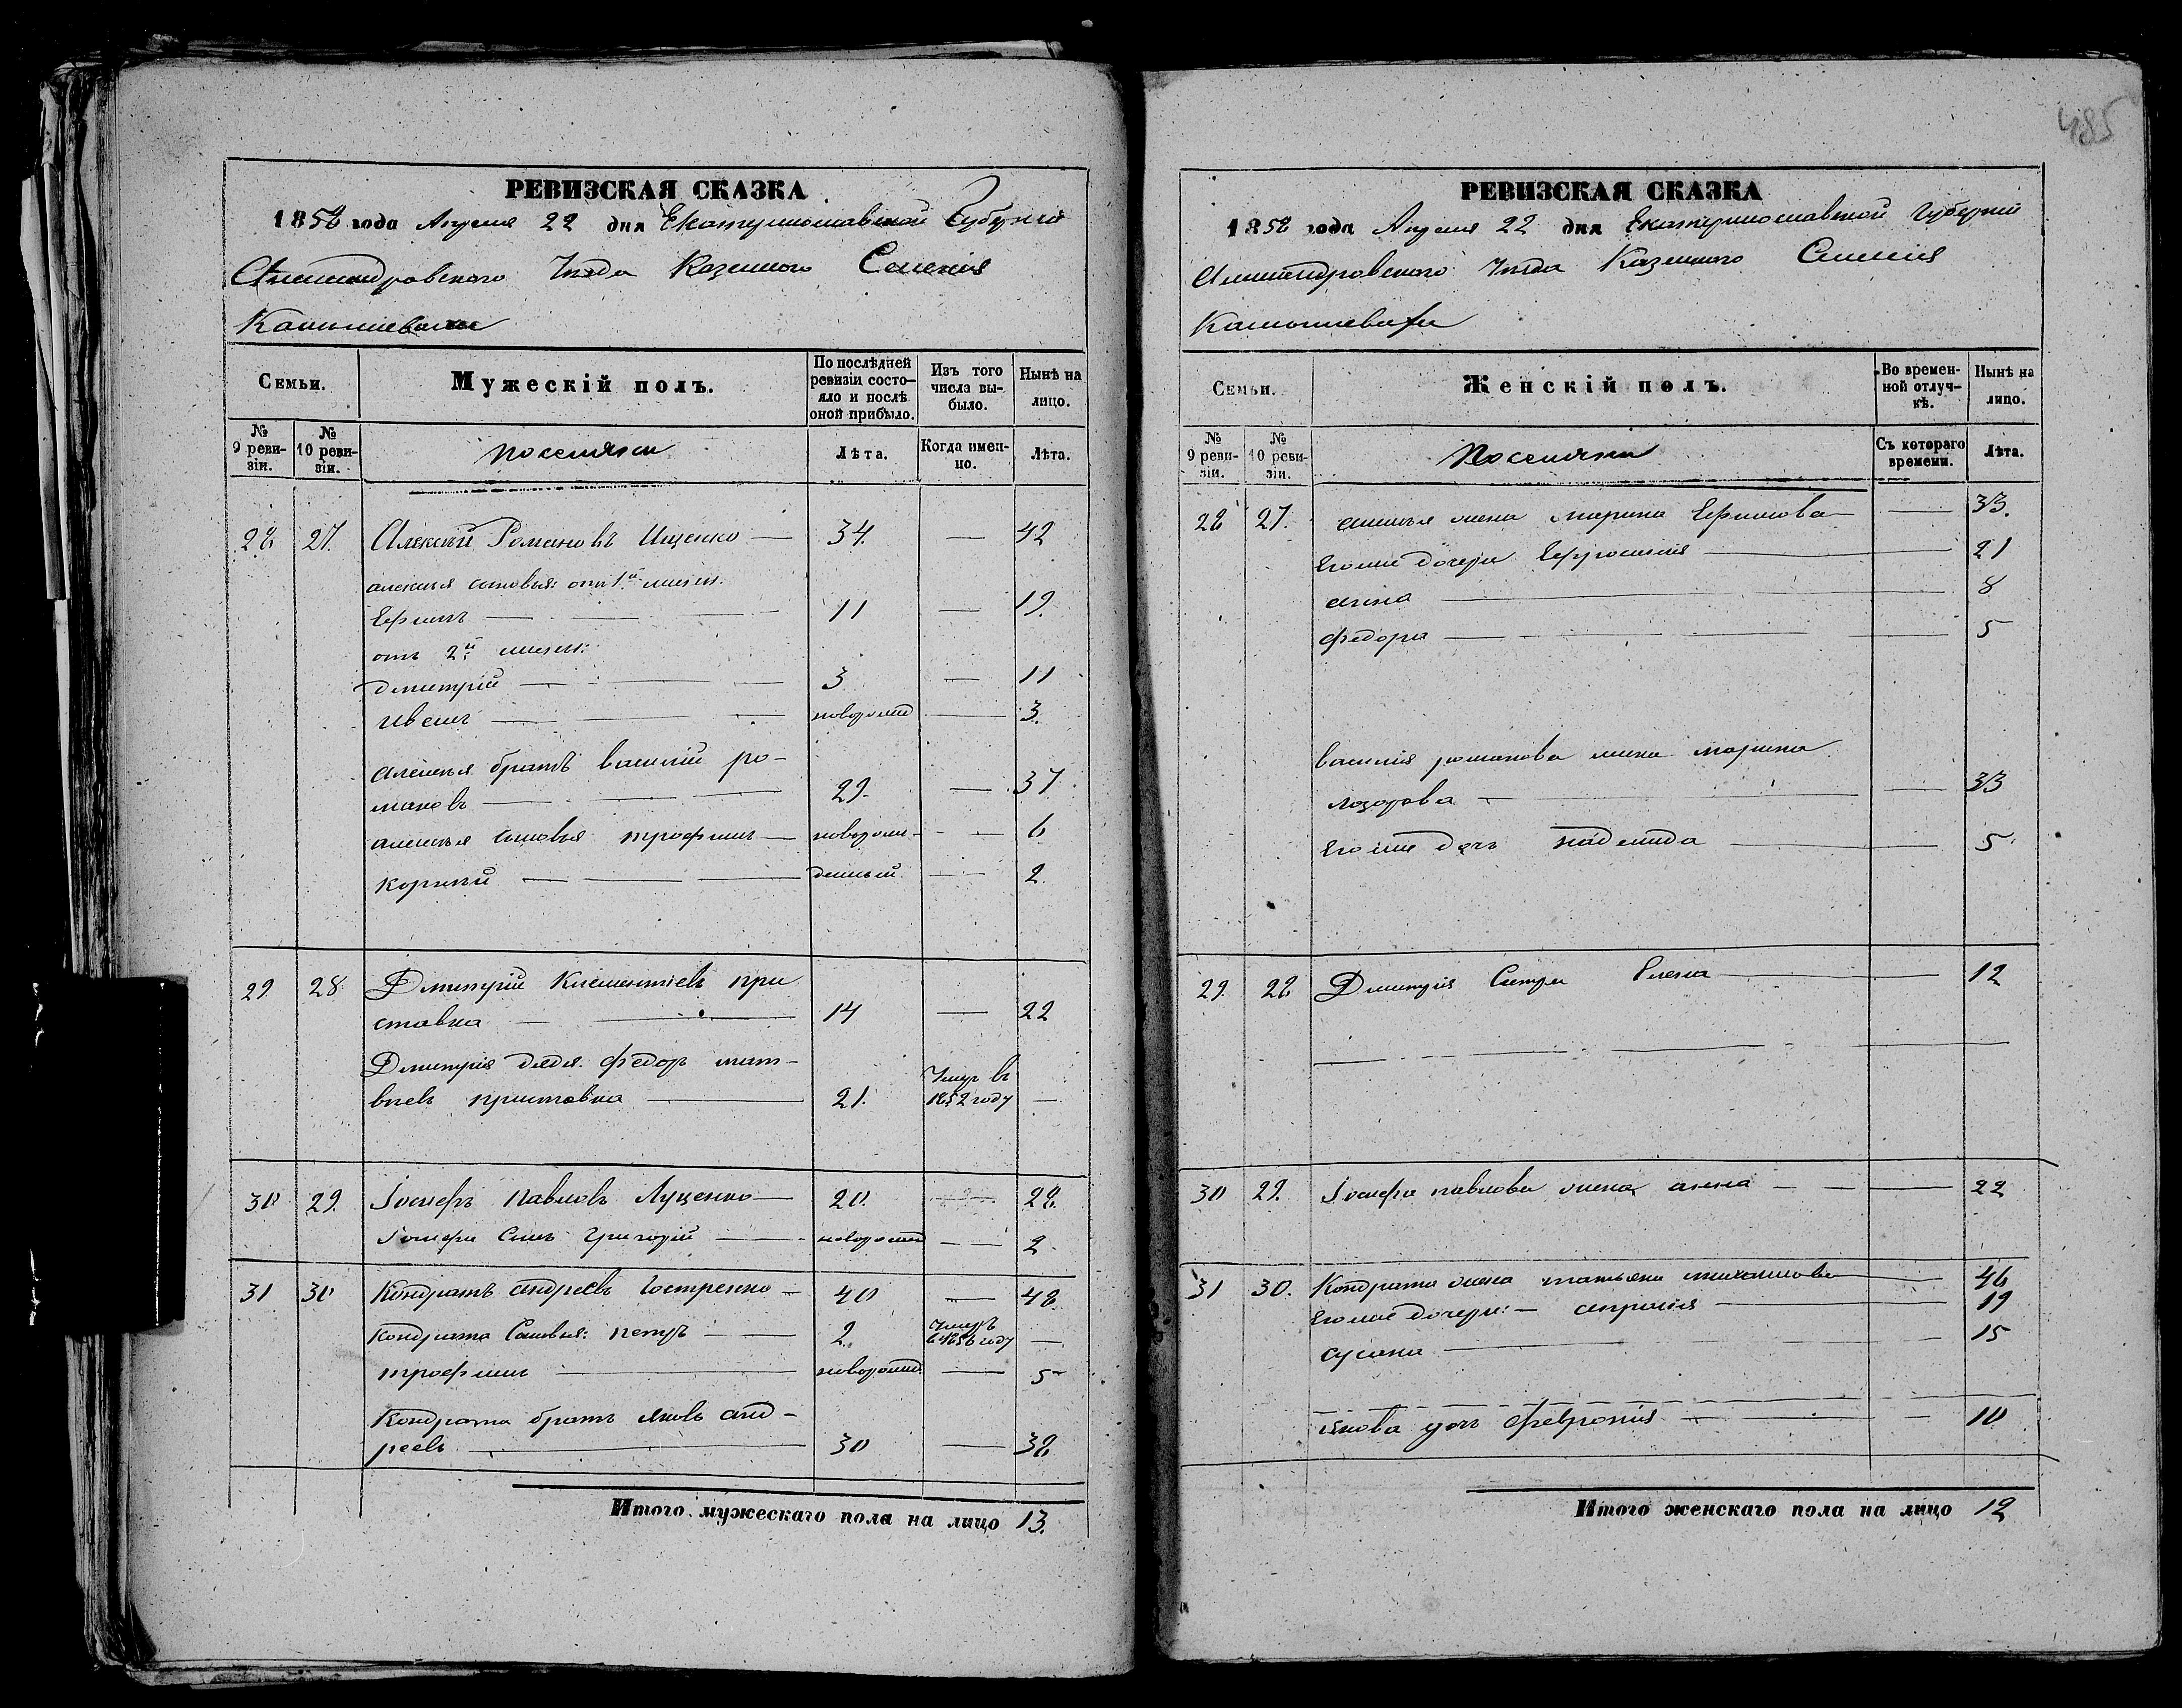 485
РЕВИЗСКАЯ СКАЗКА
1858 года Апреля 22 дня Екатеринославской Губернии
Александровского Уезда Казенного Селения
Камышевахи
Семьи.
Мужескій полъ.
По послѣдней ревизіи состояло и послѣ оной прибыло.
Изъ того числа выбыло.
Нынѣ на лицо.
№ 9 ревизіи.
№ 10 ревизіи.
поселяни
Лѣта.
Когда именно.
Лѣта.
28 27. Алексей Романовъ Ищенко — 34. — 42
алексея сыновья: отъ 1й жены.
Ефимъ — 11 — 19.
отъ 2й жены:
дмитрій — 3 — 11
Иванъ — новорожд — 3.
Алексея братъ василий ро-
мановъ — 29. — 37.
сыновья трофимъ — новорож- — 6
корнѣй — денный — 2.
29. 28. Дмитрій Клементіевъ при
ставка — 14 — 22
Дмитрія дядя федоръ мат-
веевъ приставка — 21. Умеръ в 1852 году —
30 29. Іосифъ павловъ Луценко — 20. — 28.
Іосифа Сынъ григорій — новорожд — 2.
31 30 Кондратъ андреевъ Гостренко — 40 — 48
Кондрата Сыновья: петръ — 2. Умеръ в 1856 году —
трофимъ — новорожд. — 5
Кондрата братъ яковъ анд-
реевъ — 30 — 38
Итого мужескаго пола на лицо 13.
РЕВИЗСКАЯ СКАЗКА
1858 года Апреля 22 дня Екатеринославской Губернии
Александровского Уезда Казенного Селения
Камышевахи
Семьи.
Женскій полъ.
Во временной отлучкѣ.
Нынѣ на лицо.
№ 9 ревизіи.
№ 10 ревизіи.
Поселяни
Съ котораго времени.
Лѣта.
28 27. алексея жена марина Ефимова — 33.
Егоже дочери Ефросинія — 21
анна — 8
федора — 5
василия романова жена марина
лазарова — 33
Егоже дочь надежда — 5.
29. 28 Дмитрия Сестра Елена — 12
30 29. Іосифа павлова жена анна — 22
31 30. Кондрата жена татьяна михаилова — 46
Егоже дочери: — апросія — 19
сусана — 15
якова дочь Февронія — 10
Итого женскаго пола на лицо 12